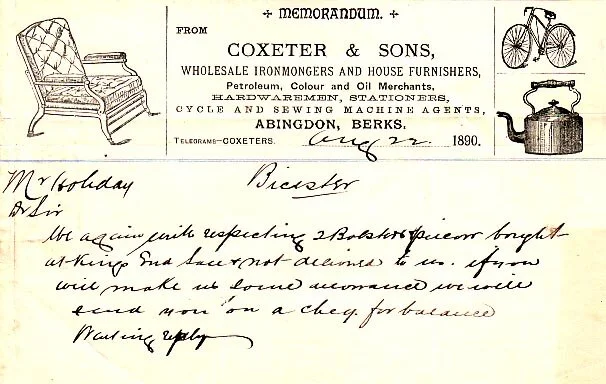 MEMORANDUM.
FROM
COXETER & SONS,
WHOLESALE IRONMONGERS AND HOUSE FURNISHERS,
Petroleum, Colour and Oil Merchants,
HARDWAREMEN, STATIONERS,
CYCLE AND SEWING MACHINE AGENTS,
ABINGDON, BERKS.
TELEGRAMS—COXETERS. Aug 22 1890.
Mr Holiday Bicester
Dr Sir
We again write respecting 2 Bolster & pillow bought
at Kings End Sale & not delivered to us. if you
will make us some allowance we will
send you on a cheq. for balance
Waiting reply